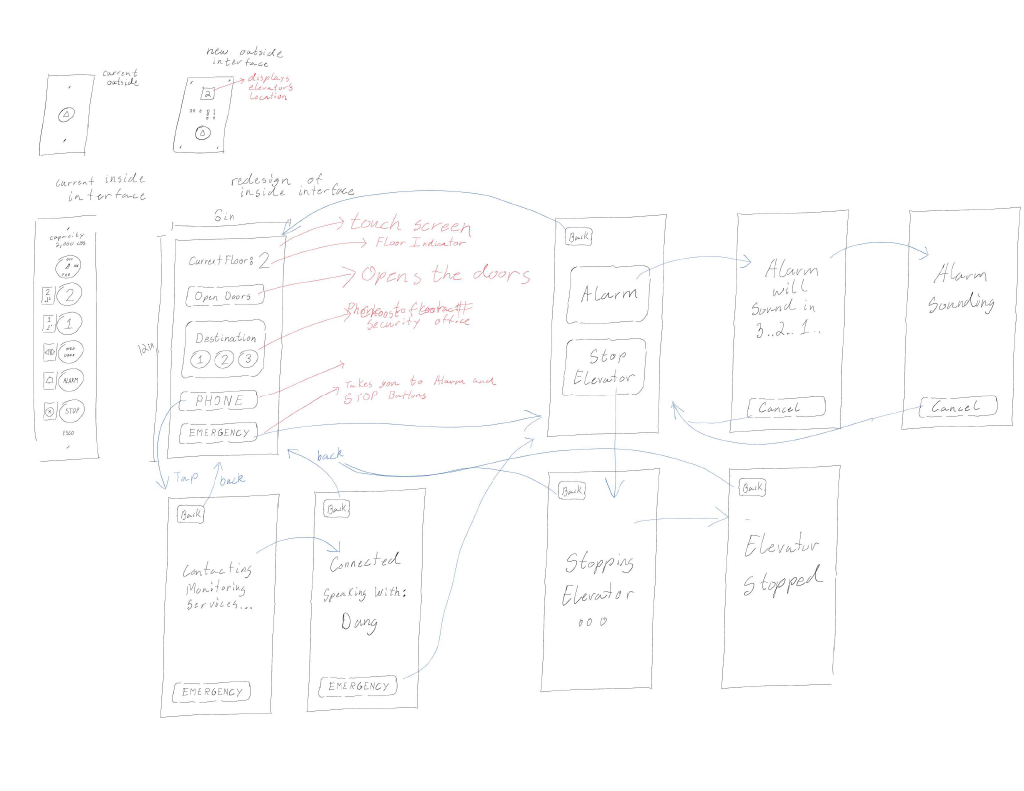 current
outside
new outside
interface
displays
elevators
Location
2
current inside
interface
capacity
2,000 LBS
2
2
1
1
ALARM
STOP
ESCO
redesign of
inside interface
5in
12in
Current Floor: 2
Open Doors
Destination
1 2 3
PHONE
EMERGENCY
touch screen
Floor Indicator
Opens the doors
security office
Takes you to Alarm and
STOP Buttons
Tap
back
back
Back
Contacting
Monitoring
Services...
EMERGENCY
Back
Connected
Speaking With:
Dang
EMERGENCY
Back
Alarm
Stop
Elevator
Alarm
will
sound in
3..2.. 1..
Cancel
Alarm
Sounding
Cancel
Back
Stopping
Elevator
ooo
Back
Elevator
Stopped